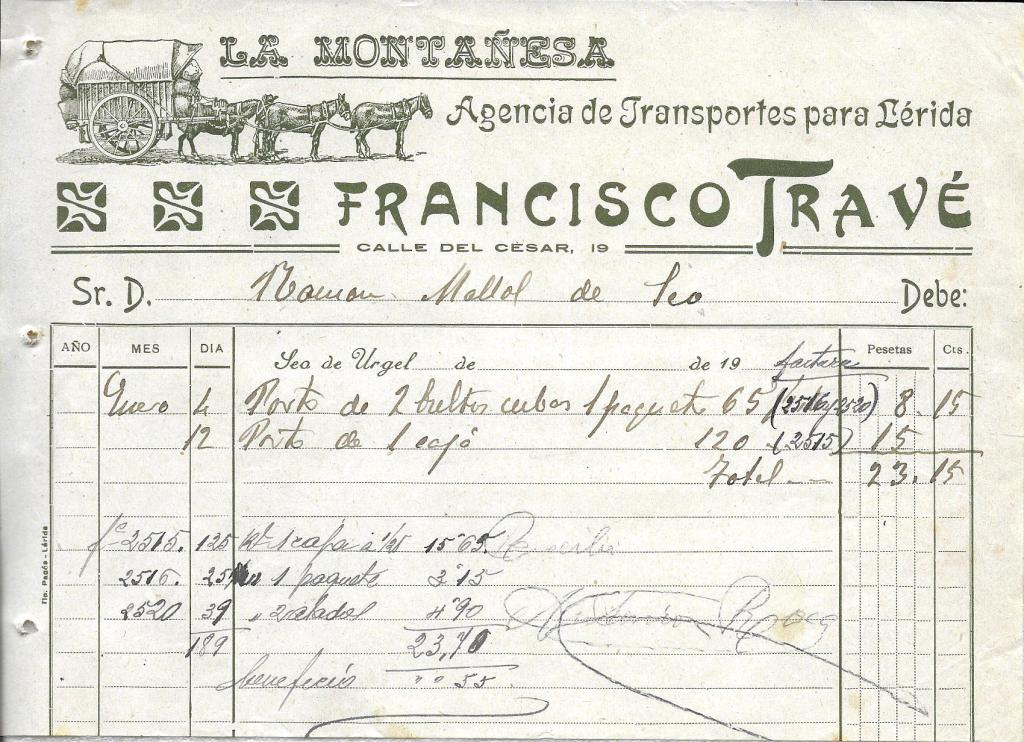 LA MONTAÑESA
Agencia de Transportes para Lérida
FRANCISCO TRAVÉ
CALLE DEL CÉSAR, 19
Sr. D. Ramon Mallol de Seo Debe:
AÑO MES DIA Seo de Urgel de de 19 factura Pesetas Cts.
Enero 4 Porte de 2 bultos cubos 1 paquete 65 (2516 y 2520) 8. 15
12 Porte de 1 caja 120 (2515) 15
Total 23. 15
2515. 125 1 caja a 1'25 15'65 Recibi
2516. 25 1 paquete 3'15
2520 39 " 4'90 Antonio Roca
189 23,70
beneficio " " 55
Tip. Pagés - Lérida